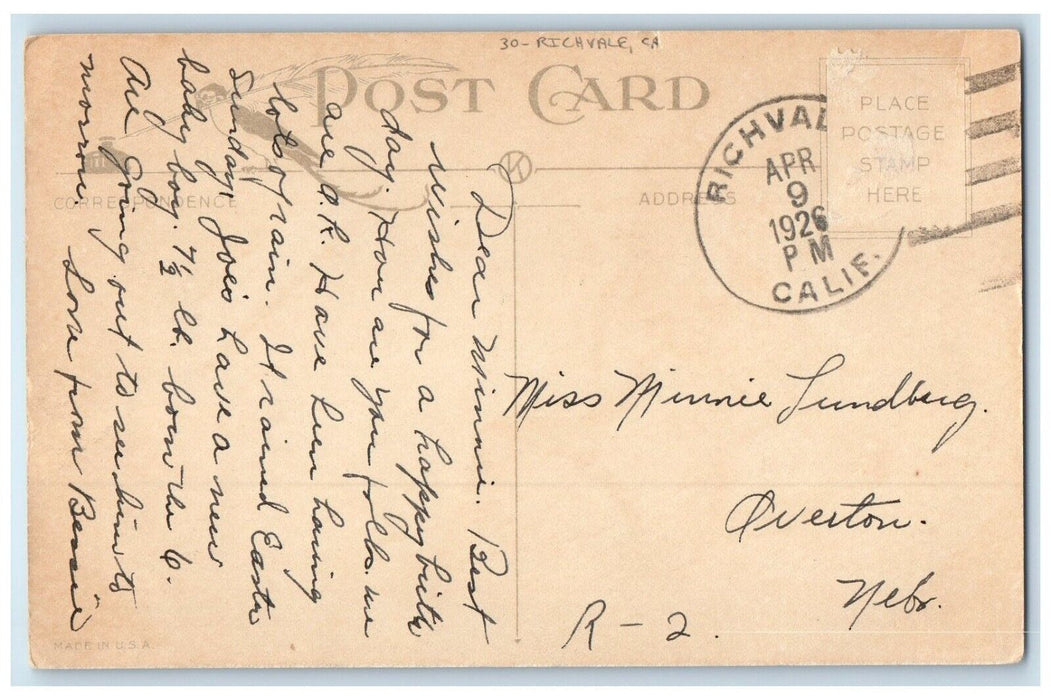 30-RICHVALE, CA
POST CARD
CORRESPONDENCE
ADDRESS
PLACE
POSTAGE
STAMP
HERE
RICHVAL
APR
9
1926
PM
CALIF.
Dear Minnie. Best
Wishes for a happy birth
day. How are you folks. we
are O.K. Have been having
lots of rain. It rained Easter
Sunday, Joe's have a new
baby boy. 7½ lb. born the 6.
Are going out to see him to
morrow. Love from Bessie
Miss Minnie Lundberg.
Overton.
Nebr.
R-2.
MADE IN U.S.A.